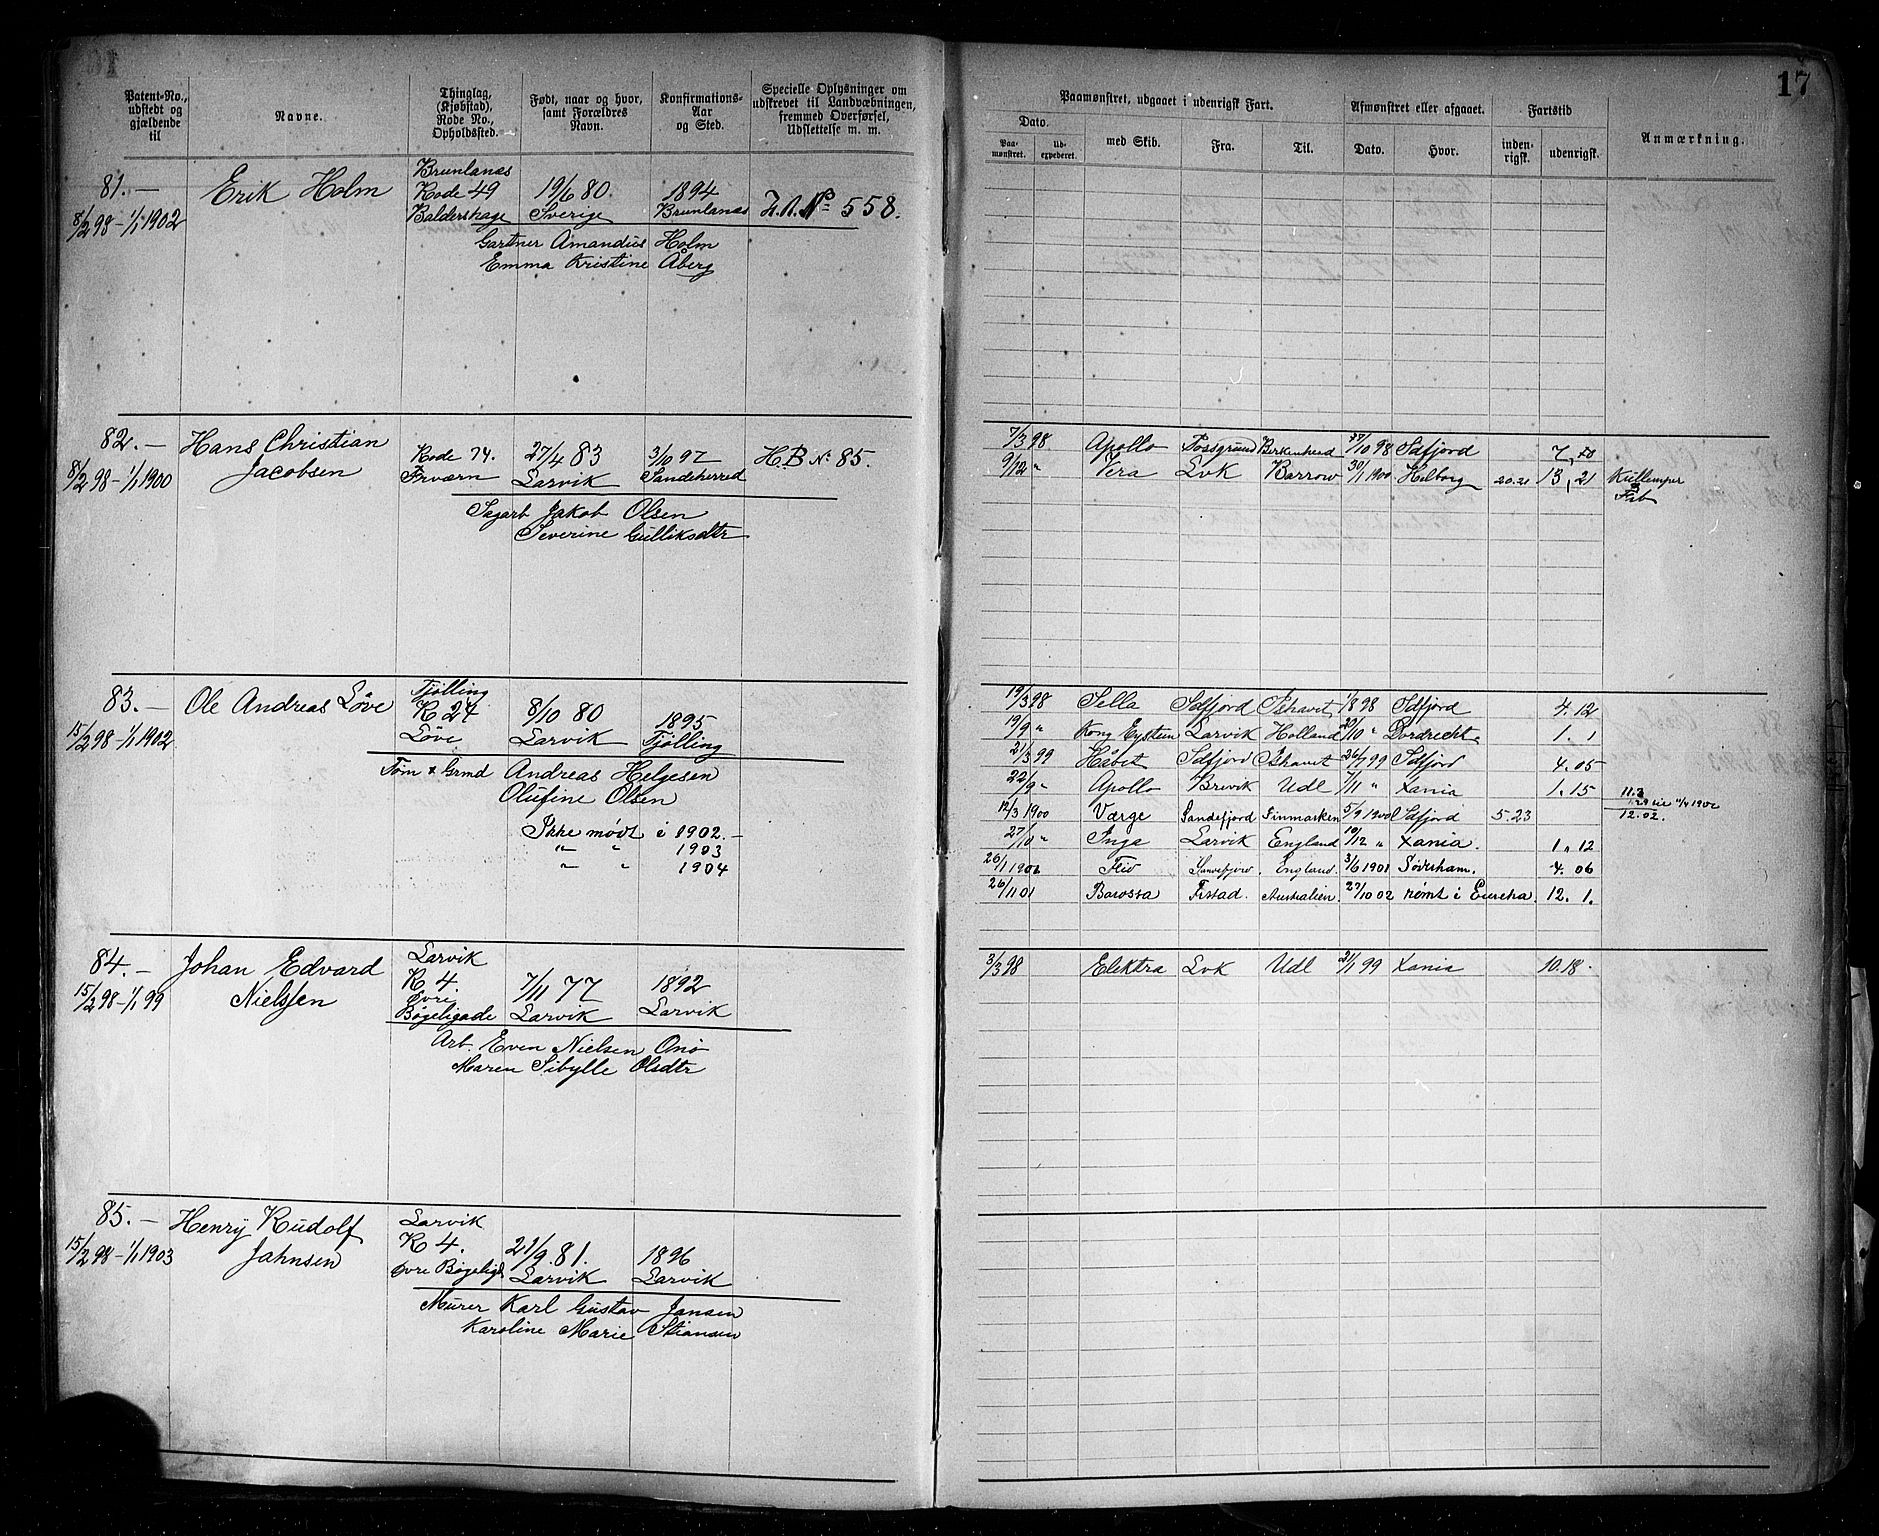 17
Patent-No., udstedt og gjældende til
Navne.
Thinglag, (Kjøbstad), Rode No., Opholdssted.
Født, naar og hvor, samt Forældres Navn.
Konfirmations-Aar og Sted.
Specielle Oplysninger om udskrevet til Landværbningen, fremmed Overførsel, Udslettelse m. m.
Paamønstret, udgaaet i udenrigsk Fart.
Afmønstret eller afgaaet.
Fartstid
Anmærkning.
Dato.
Paa-mønstret.
Ud-expederet.
med Skib.
Fra.
Til.
Dato.
Hvor.
inden-rigsk.
udenrigsk.
81.—
8/2 98 – 1/1 1902
Erik Holm
Brunlanæs
Rode 49
Baldershage
19/6 80.
Sverige
1894
Brunlanæs
No 558.
Gartner Amandus Holm
Emma Kristine Åberg
82.—
8/2 98 – 1/1 1900
Hans Christian
Jacobsen
Rode 74.
27/4 83
Larvik
3/10 97
Sandeherred
H.B No 85.
Sagarb Jakob Olsen
Severine Gulliksdtr
7/3 98 Apollo Birkenhead 10 98 Sdfjord
9/12 " Vera Lvk Barrow 30/1 1900 20.21 13, 21
83.—
15/2 98 – 1/1 1902
Ole Andreas Løve
Tjølling
R 24
Løve
8/10 80
Larvik
1895
Tjølling
Tøm & Grmd Andreas Helgesen
Olufine Olsen
Ikke mødt i 1902.—
" " 1903
" " 1904
19/3 98 Sella Sdfjord Ishavet 1/8 98 Sdfjord 4. 12
19/9 " Kong Eystein Larvik Holland 20/10 " Dordrecht 1. 1
21/3 99 Håbet Sdfjord Ishavet 26/7 99 Sdfjord 4. 05
22/9 " Apollo Brevik Udl 7/11 " Xania 1. 15
12/3 1900 Værge Sandefjord Finmarken 5/9 1900 Sdfjord 5.23
12.02.
27/10 " Inga Larvik England 19/12 " Xania. 1, 12
England. 3/6 1901 4. 06
26/11 01 Barossa Frstad. Australien 27/10 02 rømt i Eureka. 12. 1.
84.—
15/2 98 – 1/1 99
Johan Edvard
Nielsen
Larvik
R 4.
Øvre
Bøgeligade
7/11 77
Larvik
1892
Larvik
Arb. Even Nielsen Onø
Maren Sibylle Olsdtr
3/3 98 Elektra Lvk Udl 21/1 99 Xania 10.18.
85.—
15/2 98 – 1/1 1903
Henry Rudolf
Jahnsen
Larvik
R 4.
Øvre Bøgeligd
21/9. 81.
Larvik
1896
Larvik
Murer Karl Gustav Jansen
Karoline Marie Stiansen